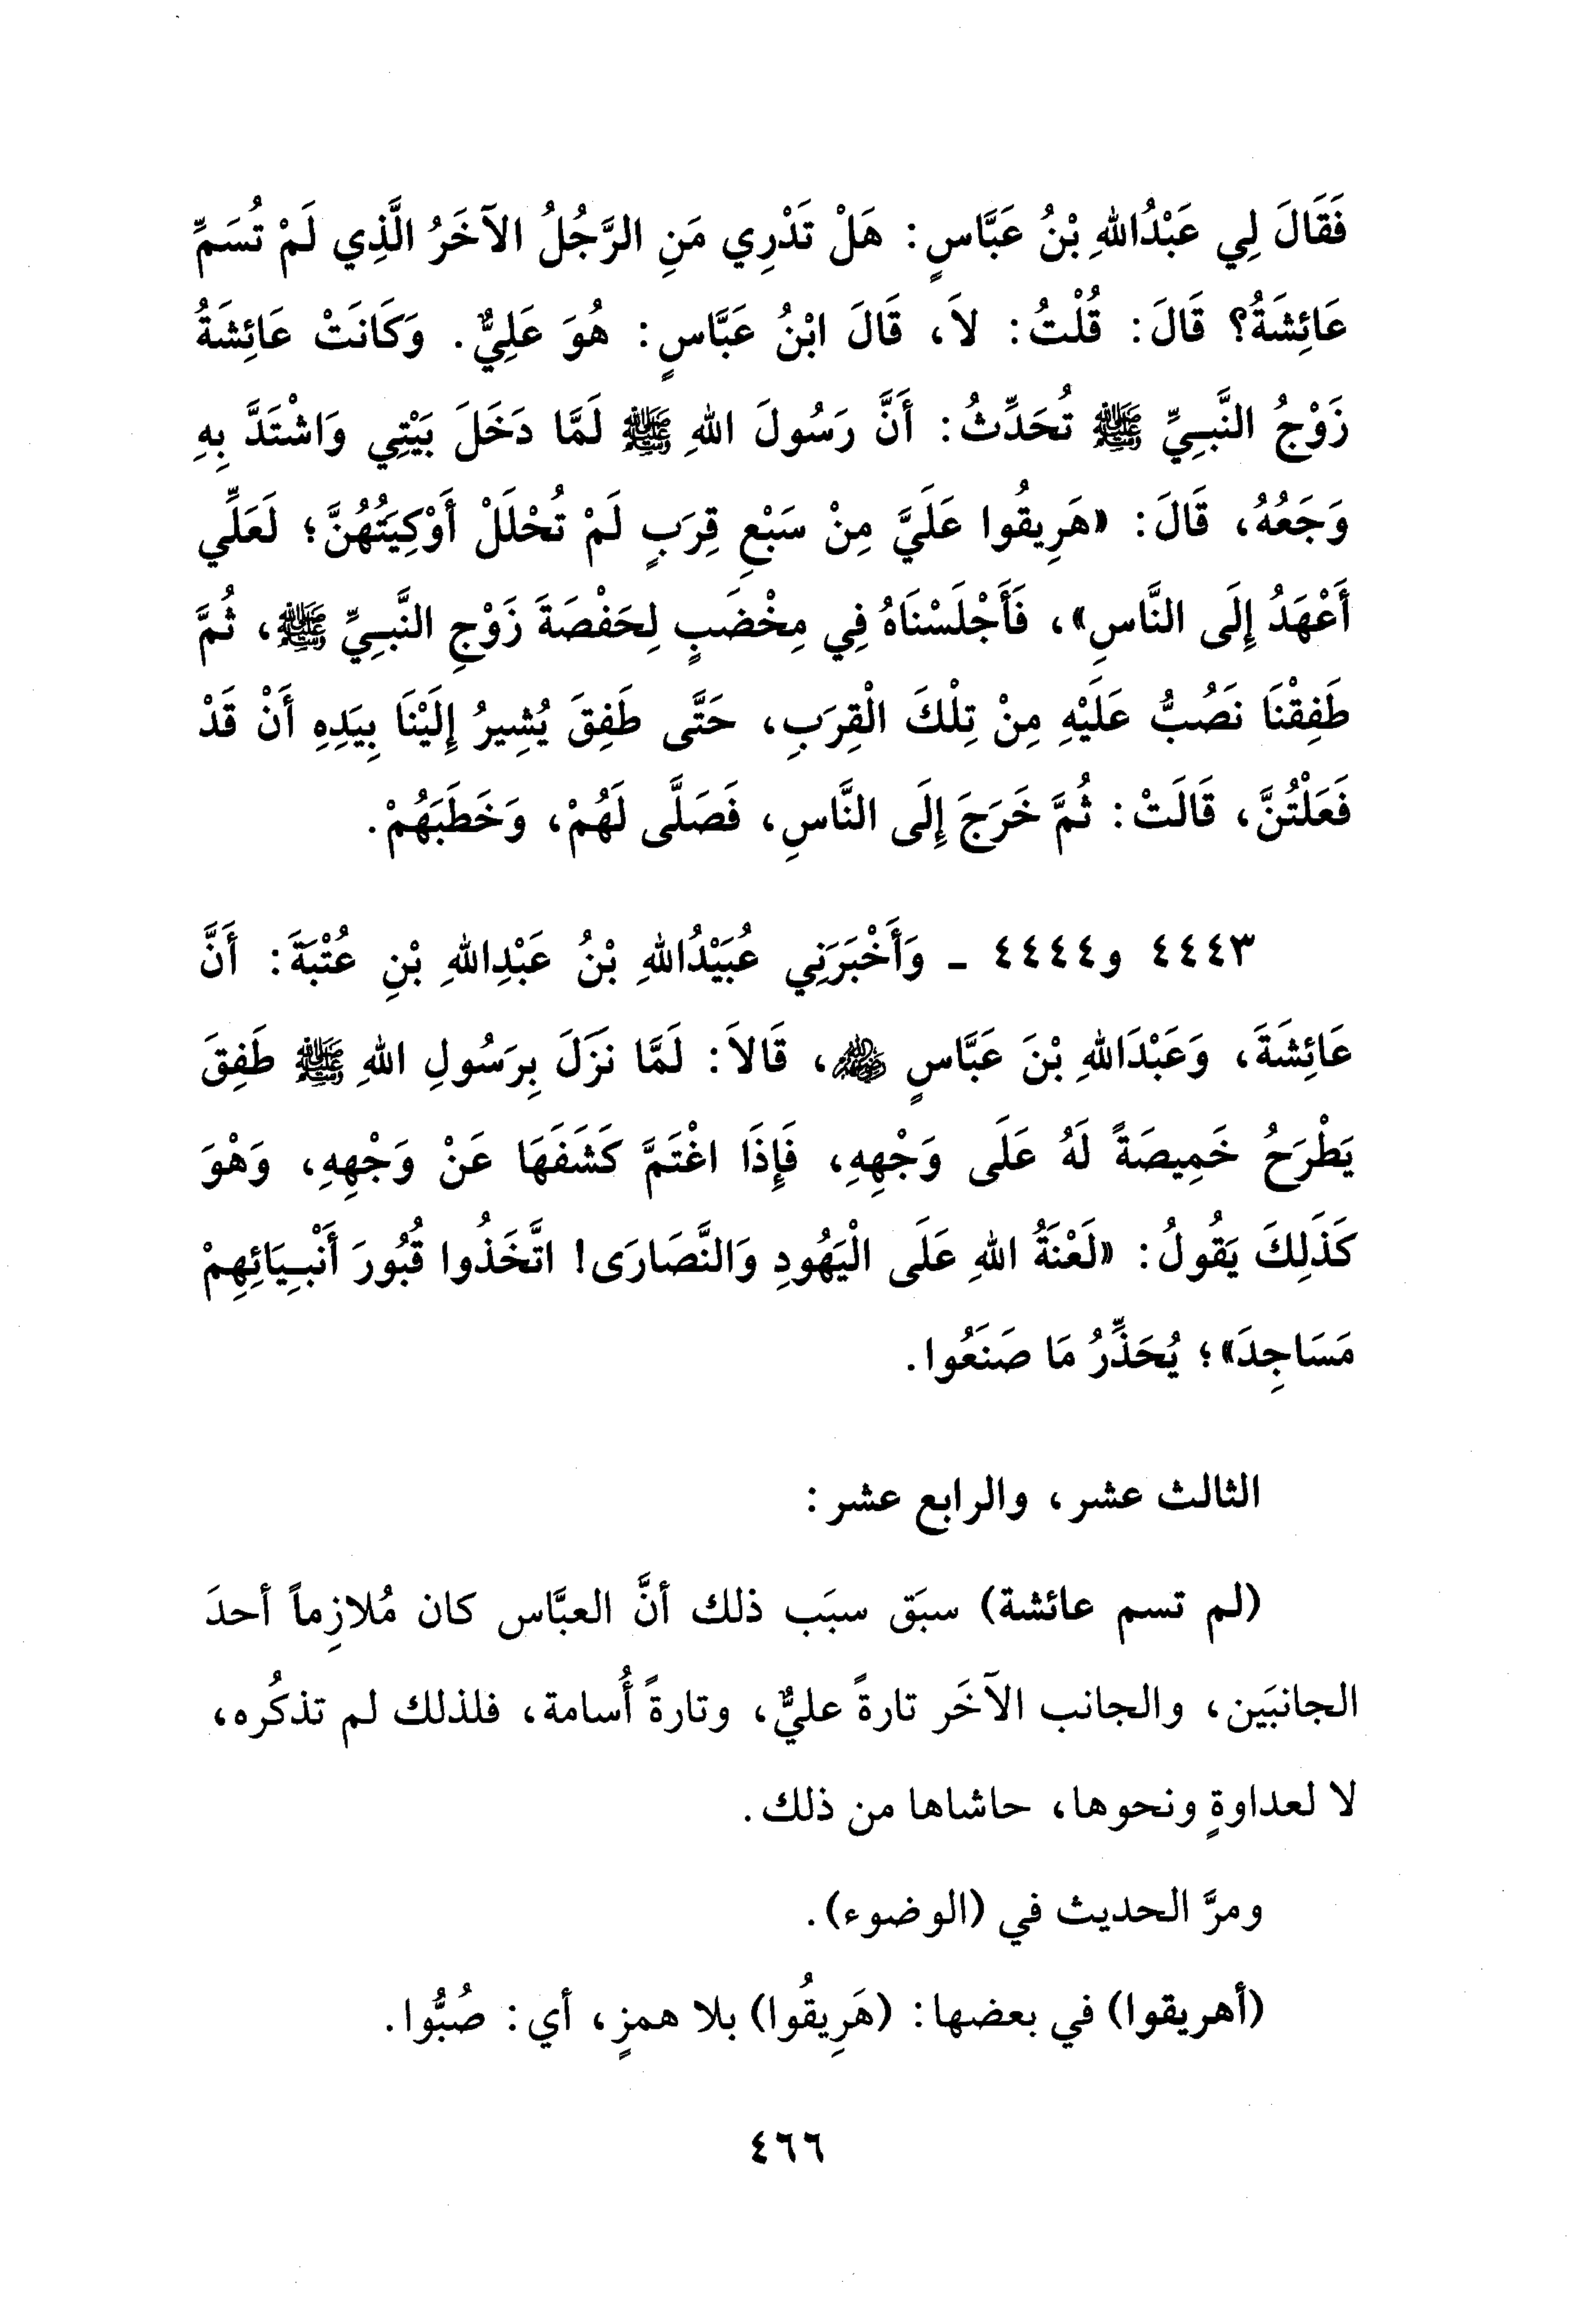 فَقَالَ لِي عَبْدُاللهِ بْنُ عَبَّاسٍ: هَلْ تَدْرِي مَنِ الرَّجُلُ الآخَرُ الَّذِي لَمْ تُسَمِّ
عَائِشَةُ؟ قَالَ: قُلْتُ: لاَ، قَالَ ابْنُ عَبَّاسٍ: هُوَ عَلِيٌّ. وَكَانَتْ عَائِشَةُ
زَوْجُ النَّبِيِّ ﷺ تُحَدِّثُ: أَنَّ رَسُولَ اللهِ ﷺ لَمَّا دَخَلَ بَيْتِي وَاشْتَدَّ بِهِ
وَجَعُهُ، قَالَ: «هَرِيقُوا عَلَيَّ مِنْ سَبْعِ قِرَبٍ لَمْ تُحْلَلْ أَوْكِيَتُهُنَّ؛ لَعَلِّي
أَعْهَدُ إِلَى النَّاسِ»، فَأَجْلَسْنَاهُ فِي مِخْضَبٍ لِحَفْصَةَ زَوْجِ النَّبِيِّ ﷺ، ثُمَّ
طَفِقْنَا نَصُبُّ عَلَيْهِ مِنْ تِلْكَ الْقِرَبِ، حَتَّى طَفِقَ يُشِيرُ إِلَيْنَا بِيَدِهِ أَنْ قَدْ
فَعَلْتُنَّ، قَالَتْ: ثُمَّ خَرَجَ إِلَى النَّاسِ، فَصَلَّى لَهُمْ، وَخَطَبَهُمْ.
٤٤٤٣ و٤٤٤٤ - وَأَخْبَرَنِي عُبَيْدُاللهِ بْنُ عَبْدِاللهِ بْنِ عُتْبَةَ: أَنَّ
عَائِشَةَ، وَعَبْدَاللهِ بْنَ عَبَّاسٍ ﵃، قَالاَ: لَمَّا نَزَلَ بِرَسُولِ اللهِ ﷺ طَفِقَ
يَطْرَحُ خَمِيصَةً لَهُ عَلَى وَجْهِهِ، فَإِذَا اغْتَمَّ كَشَفَهَا عَنْ وَجْهِهِ، وَهْوَ
كَذَلِكَ يَقُولُ: «لَعْنَةُ اللهِ عَلَى الْيَهُودِ وَالنَّصَارَى! اتَّخَذُوا قُبُورَ أَنْبِيَائِهِمْ
مَسَاجِدَ»؛ يُحَذِّرُ مَا صَنَعُوا.
الثالث عشر، والرابع عشر:
(لم تسم عائشة) سبَق سبَب ذلك أنَّ العبَّاس كان مُلازِماً أحدَ
الجانبَين، والجانب الآخَر تارةً عليٌّ، وتارةً أُسامة، فلذلك لم تذكُره،
لا لعداوةٍ ونحوها، حاشاها من ذلك.
ومرَّ الحديث في (الوضوء).
(أهريقوا) في بعضها: (هَرِيقُوا) بلا همزٍ، أي: صُبُّوا.
٤٦٦